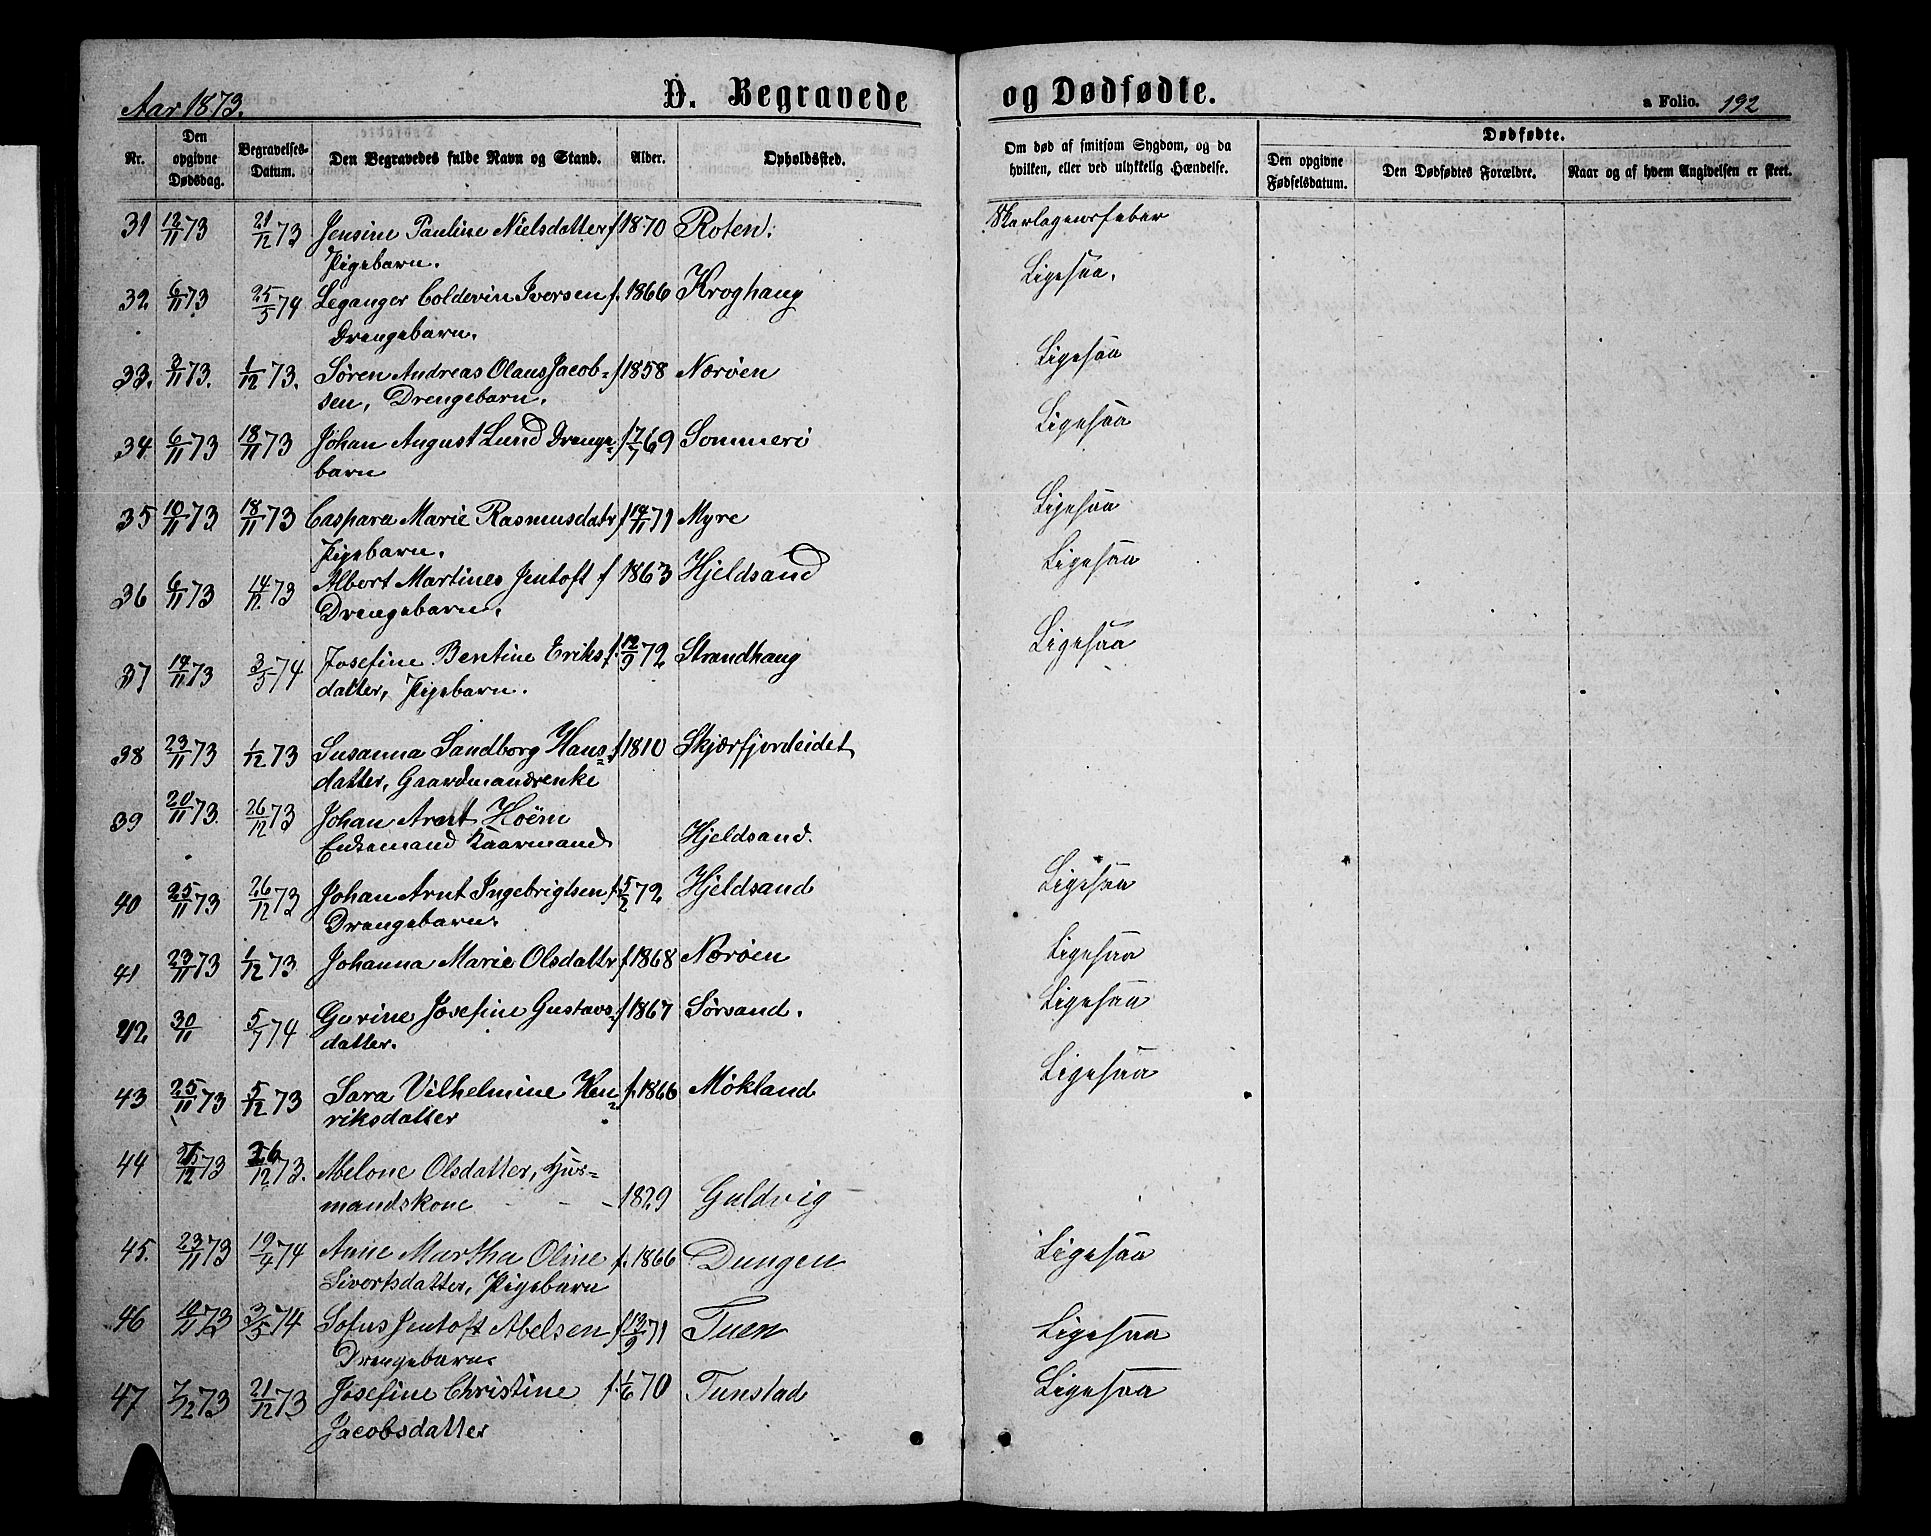 Aar 1873. D. Begravede og Dødfødte. a Folio. 192
Nr. Den opgivne Dødsdag. Begravelses-Datum. Den Begravedes fulde Navn og Stand. Alder. Opholdssted. Om død af smitsom Sygdom, og da hvilken, eller ved ulykkelig Hændelse. Dødfødte. Den opgivne Fødselsdatum. Den Dødfødtes Forældre. Naar og af hvem Angivelsen er skeet.
31 12/11 73 21/12 73 Jensine Pauline Nielsdatter f 1870 Roten. Skarlagensfeber
Pigebarn.
32 6/11 73 25/5 74 Leganger Coldevin Iversen f. 1866 Kroghaug Ligesaa.
Drengebarn.
33. 3/11 73. 1/12 73. Søren Andreas Olaus Jacob- f 1858 Nørøen Ligesaa
sen, Drengebarn.
34 6/11 73 18/11 73 Johan August Lund Drenge- f 17/7 69 Sommerø Ligesaa
barn
35 10/11 73 18/11 73 Caspara Marie Rasmusdatr f 14/11 71 Myre Ligesaa
Pigebarn.
36 6/11 73 14/12 73 Albert Martines Jentoft f 1863 Hjeldsand Ligesaa
Drengebarn.
37 14/11 73 3/5 74 Josefine Bentine Eriks f. 12/9 72 Strandhaug Ligesaa
datter, Pigebarn.
38 23/11 73 1/12 73 Susanna Sandborg Hans- f 1810 Skjærfjordeidet
datter, Gaardmandsenke
39 20/11 73 26/12 73 Johan Arnt Höem
Enkemand Kaarmand Hjeldsand.
40 25/11 73 26/12 73 Johan Arnt Ingebrigtsen f. 5/2 72 Hjeldsand Ligesaa
Drengebarn.
41 23/11 73 1/12 73 Johanna Marie Olsdattr f. 1868 Nørøen Ligesaa
42 30/11 5/7 74 Gurine Josefine Gustavs- f 1867 Sørsand. Ligesaa
datter.
43 25/11 73 5/12 73 Sara Vilhelmine Hen- f. 1866 Møkland Ligesaa
riksdatter
44 /12 73 26/12 73. Melone Olsdatter, Hus-
mandskone 1829 Guldvig
45. 23/11 73 19/4 74 Anne Martha Oline f. 1866 Dungen Ligesaa
Sivertsdatter, Pigebarn
46 10/11 73 3/5 74 Sofus Jentoft Abelsen f 13/9 71 Tuen Ligesaa
Drengebarn.
47 7/12 73 21/12 73 Josefine Christine f. 1/6 70 Tunstad Ligesaa
Jacobsdatter